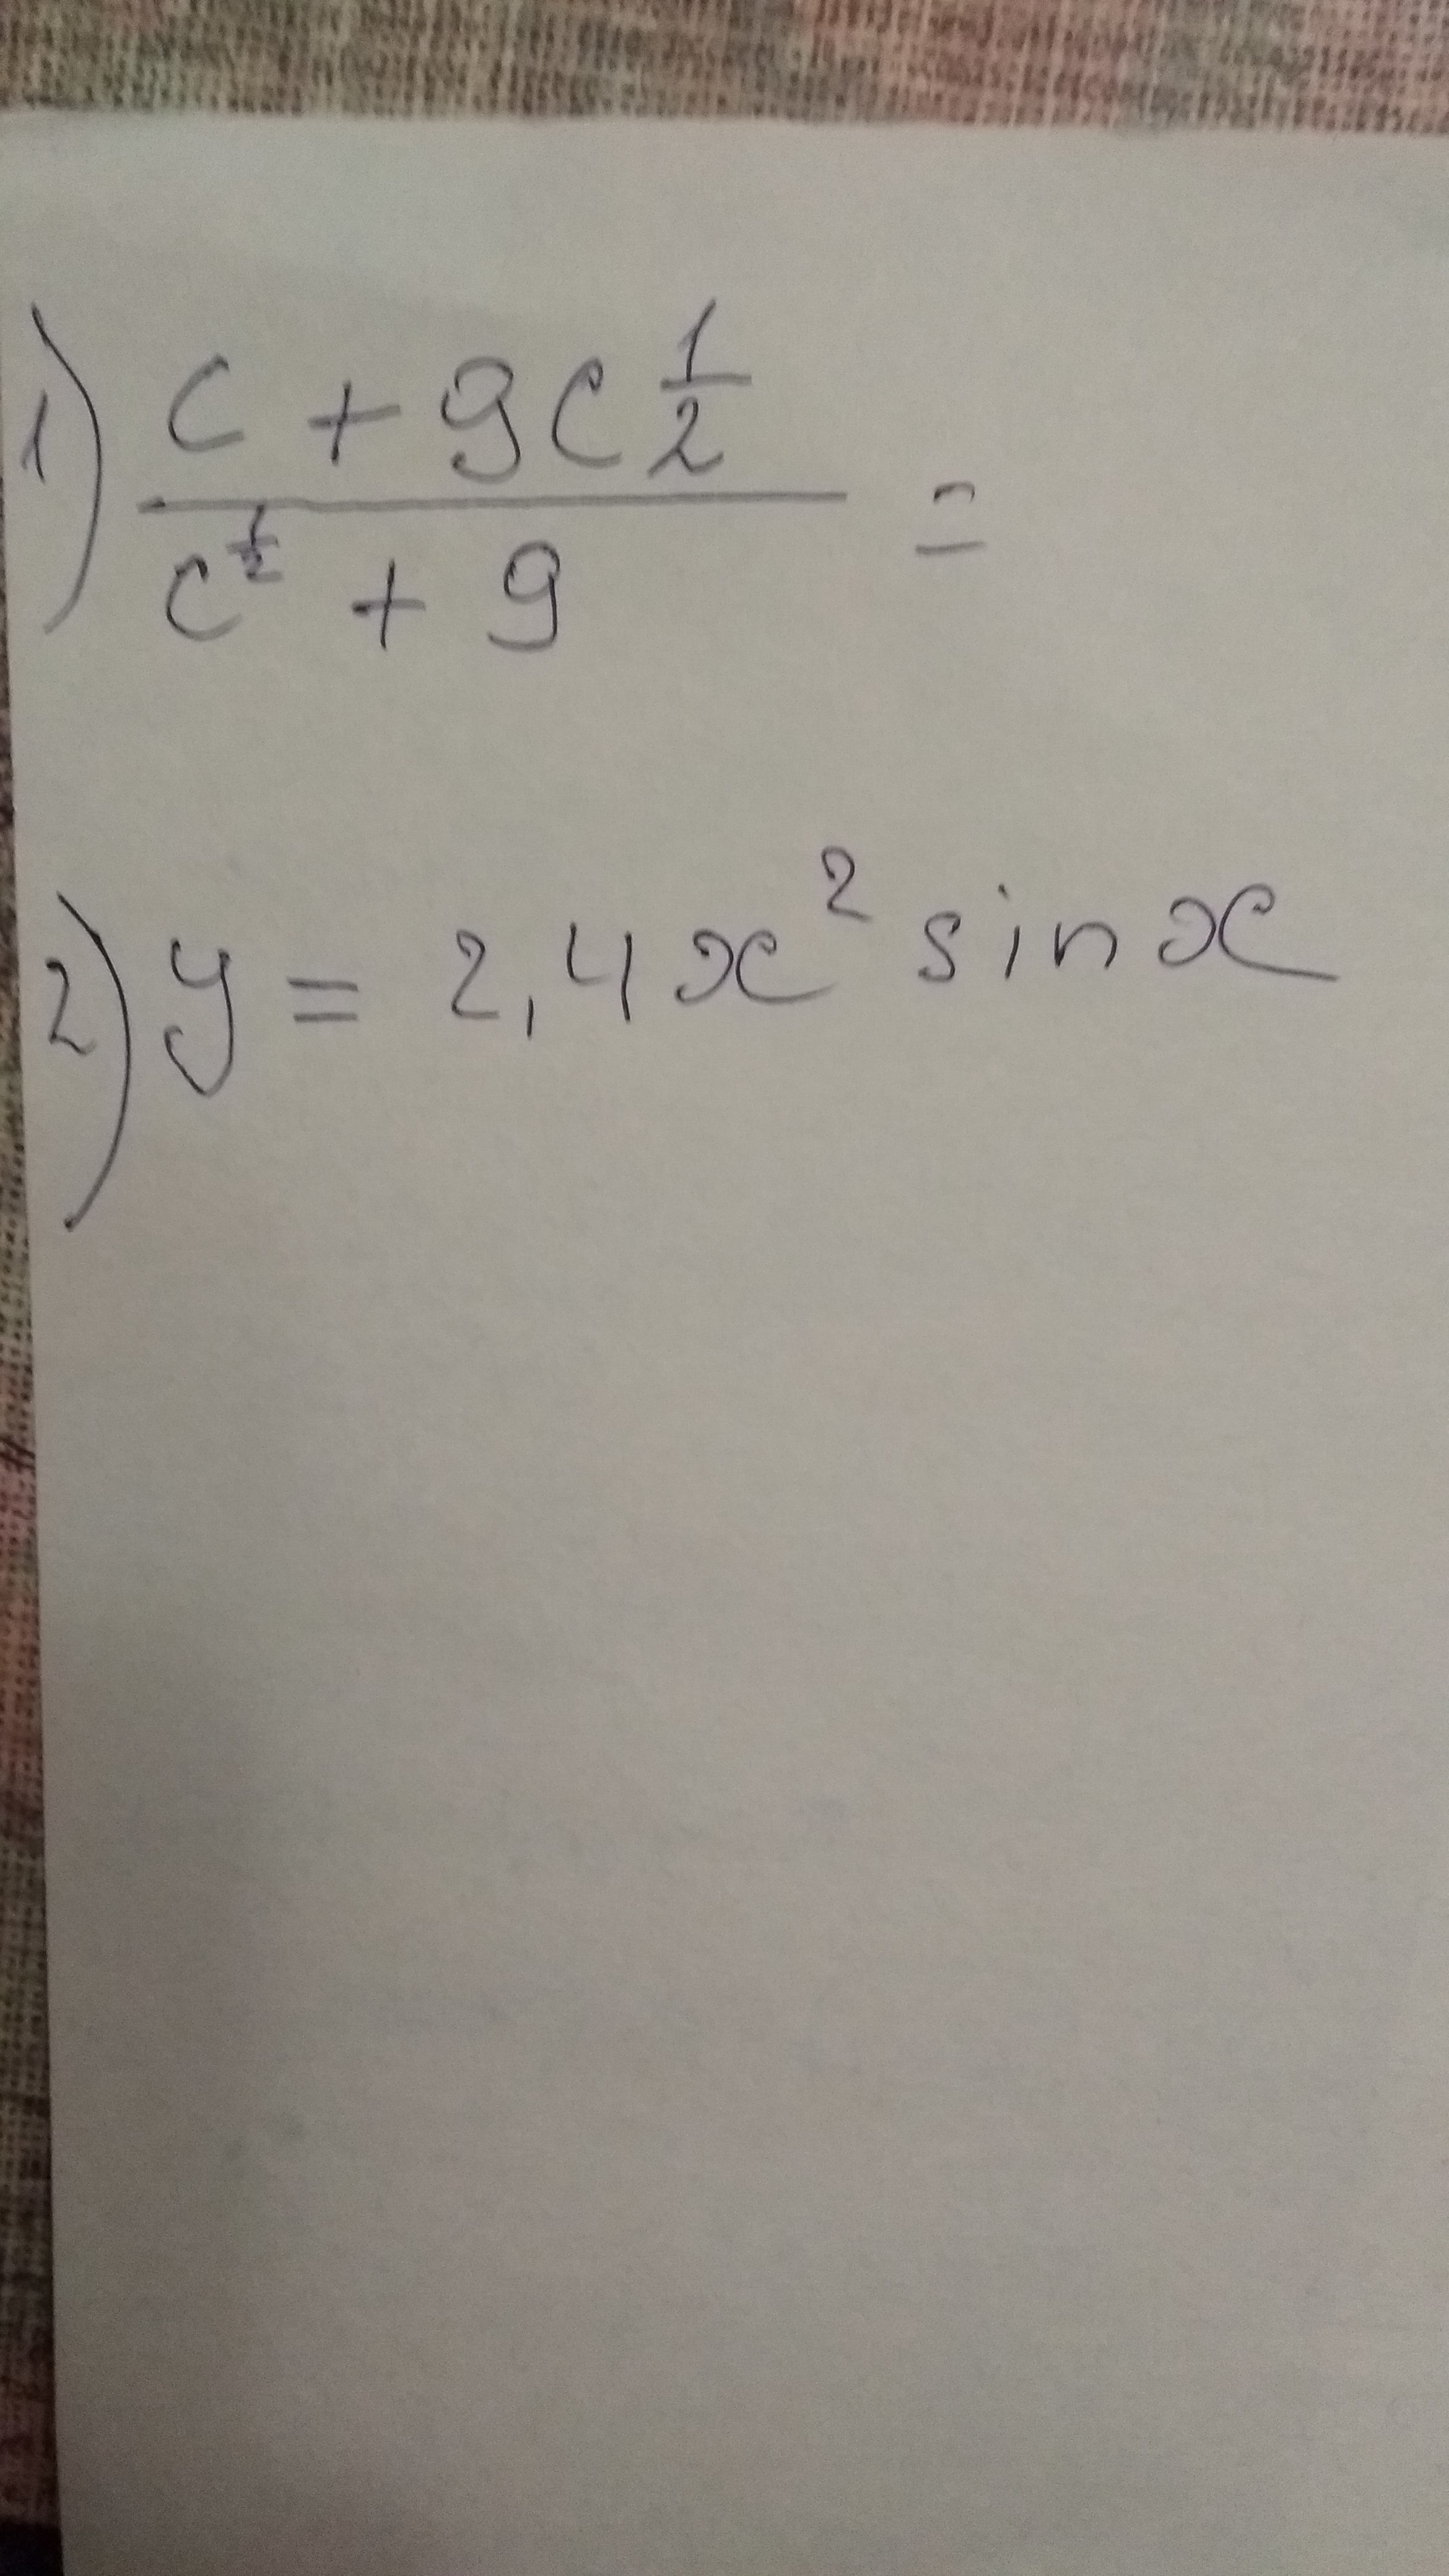 1) \frac{c + 9c^{\frac{1}{2}}}{c^{\frac{1}{2}} + 9} =
2) y = 2,4x^2 sin x